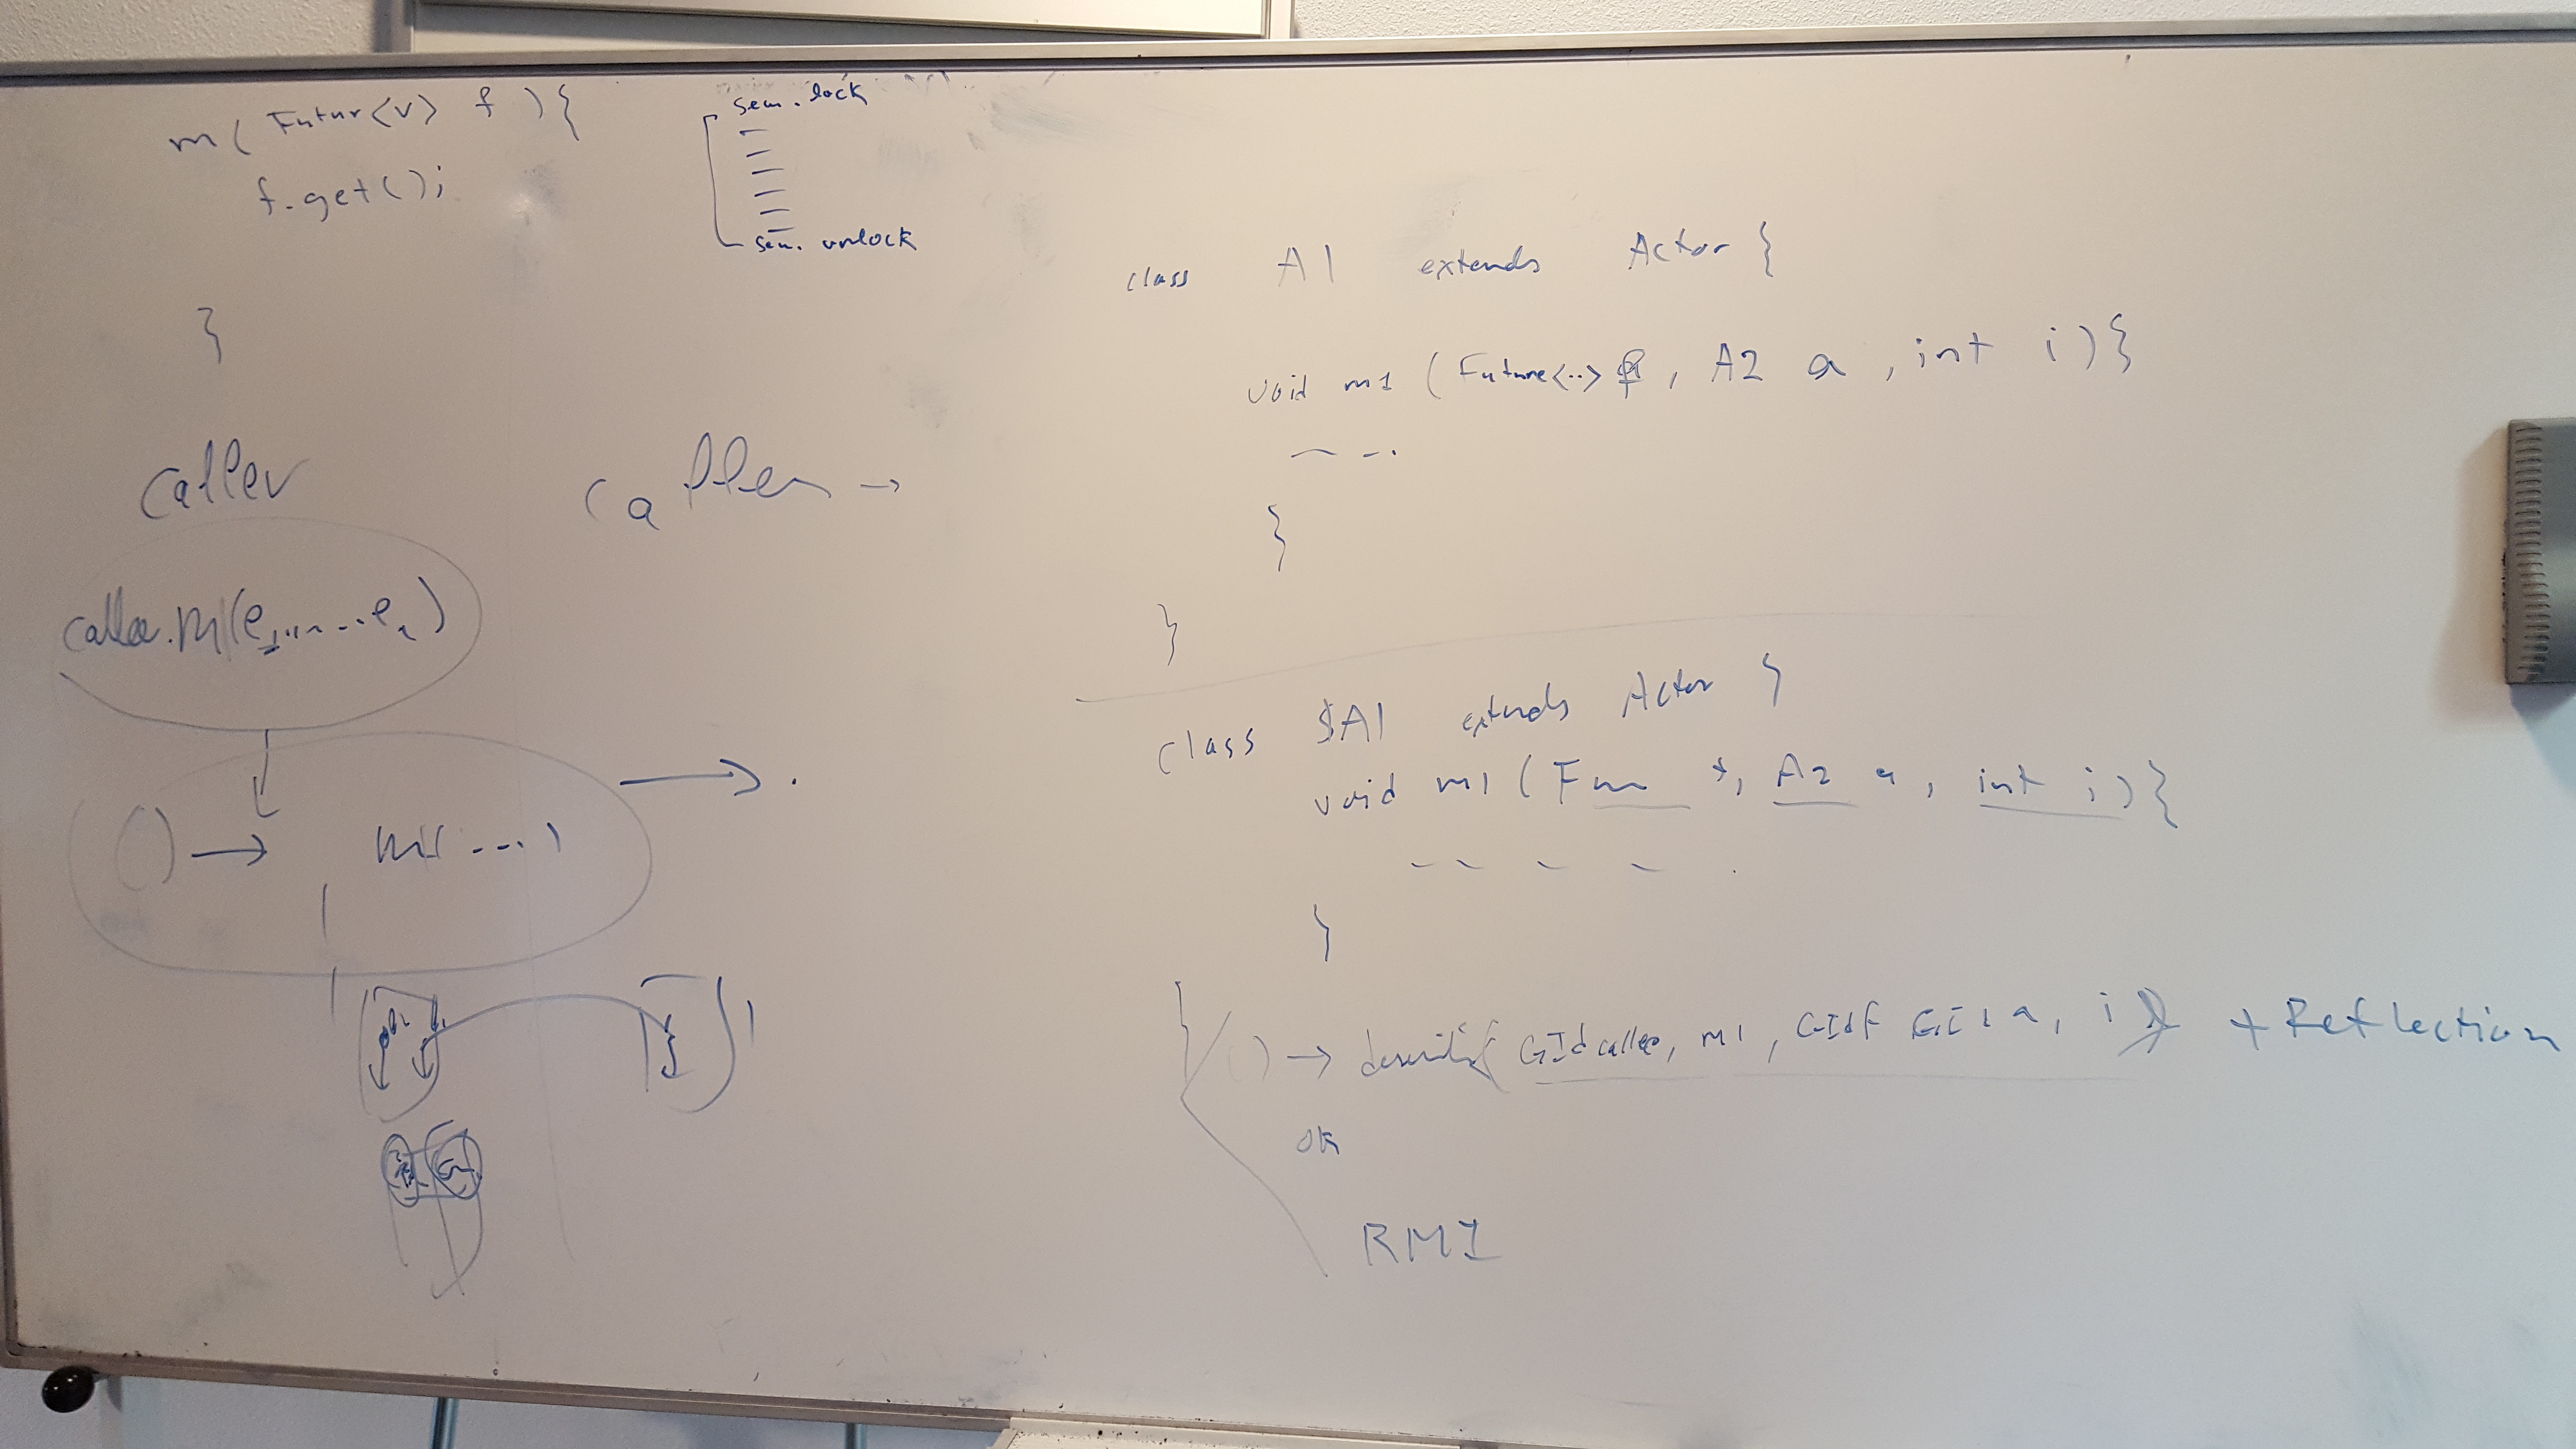 m( Futur<v> f ){
f.get();
}
sem. lock
sem. unlock
caller
callee →
callee.m(e1,....en)
() → m(...)
class A1 extends Actor {
void m1 (Future<..> f, A2 a, int i){
}
}
class $A1 extends Actor {
void m1 (Fu f, A2 a, int i){
}
() → GId callee, m1, GId f GId a, i + Reflection
ok
RMI